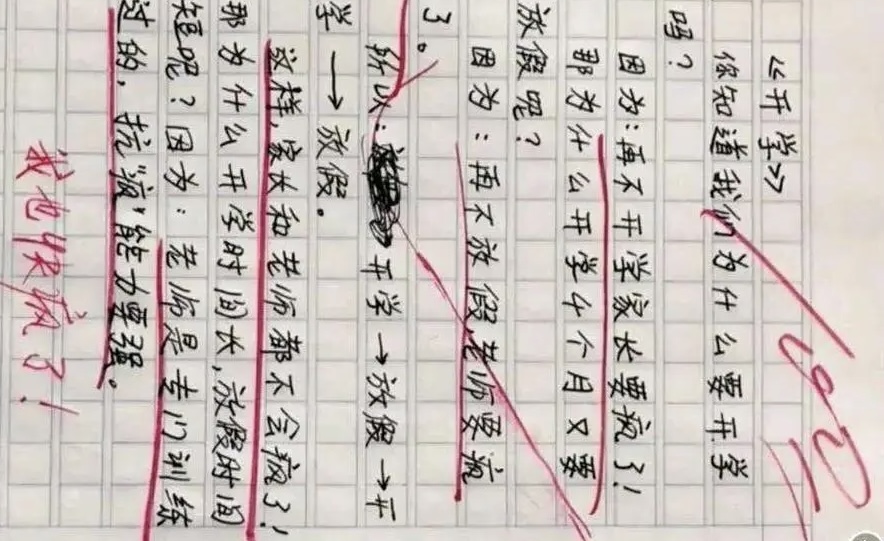 《开学》
你知道我们为什么要开学
吗？
因为：再不开学家长要疯了！
那为什么开学4个月又要
放假呢？
因为：再不放假,老师要疯
了。
所以：开学→放假→开
学→放假。
这样,家长和老师都不会疯了！
那为什么开学时间长,放假时间
短呢？因为：老师是专门训练
过的，抗“疯”能力要强。
我也快疯了！